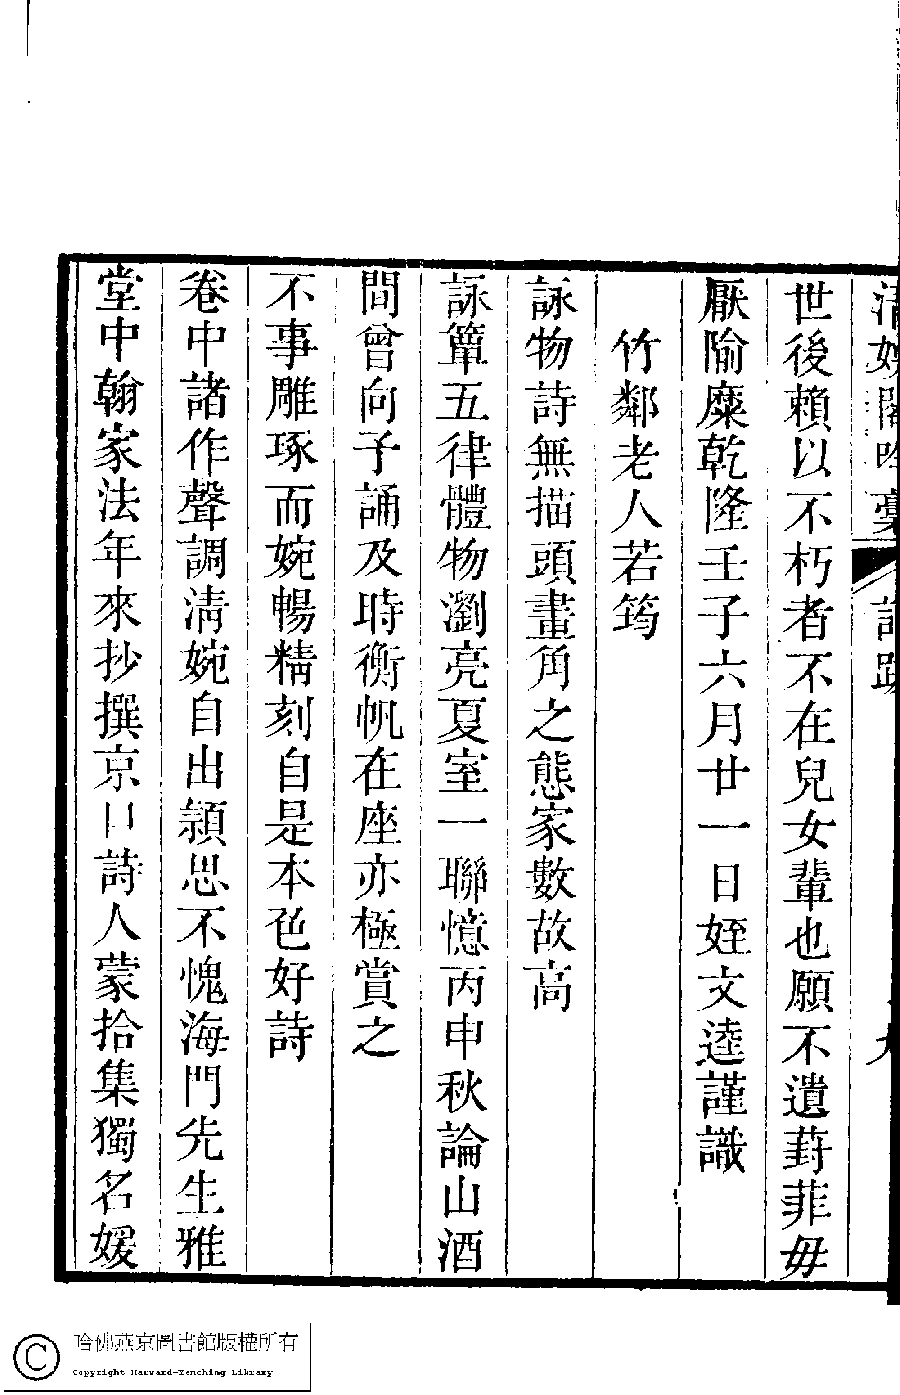 清娛閣吟藁 詩跋 九
世後賴以不朽者不在兒女輩也願不遺葑菲毋
厭隃糜乾隆壬子六月廿一日姪文逵謹識
竹鄰老人若筠
詠物詩無描頭畫角之態家數故高
詠簟五律體物瀏亮夏室一聯憶丙申秋論山酒
間曾向子誦及時衡帆在座亦極賞之
不事雕琢而婉暢精刻自是本色好詩
卷中諸作聲調清婉自出穎思不愧海門先生雅
堂中翰家法年來抄撰京口詩人蒙拾集獨名媛
哈佛燕京圖書館版權所有
Copyright Harvard-Yenching Library